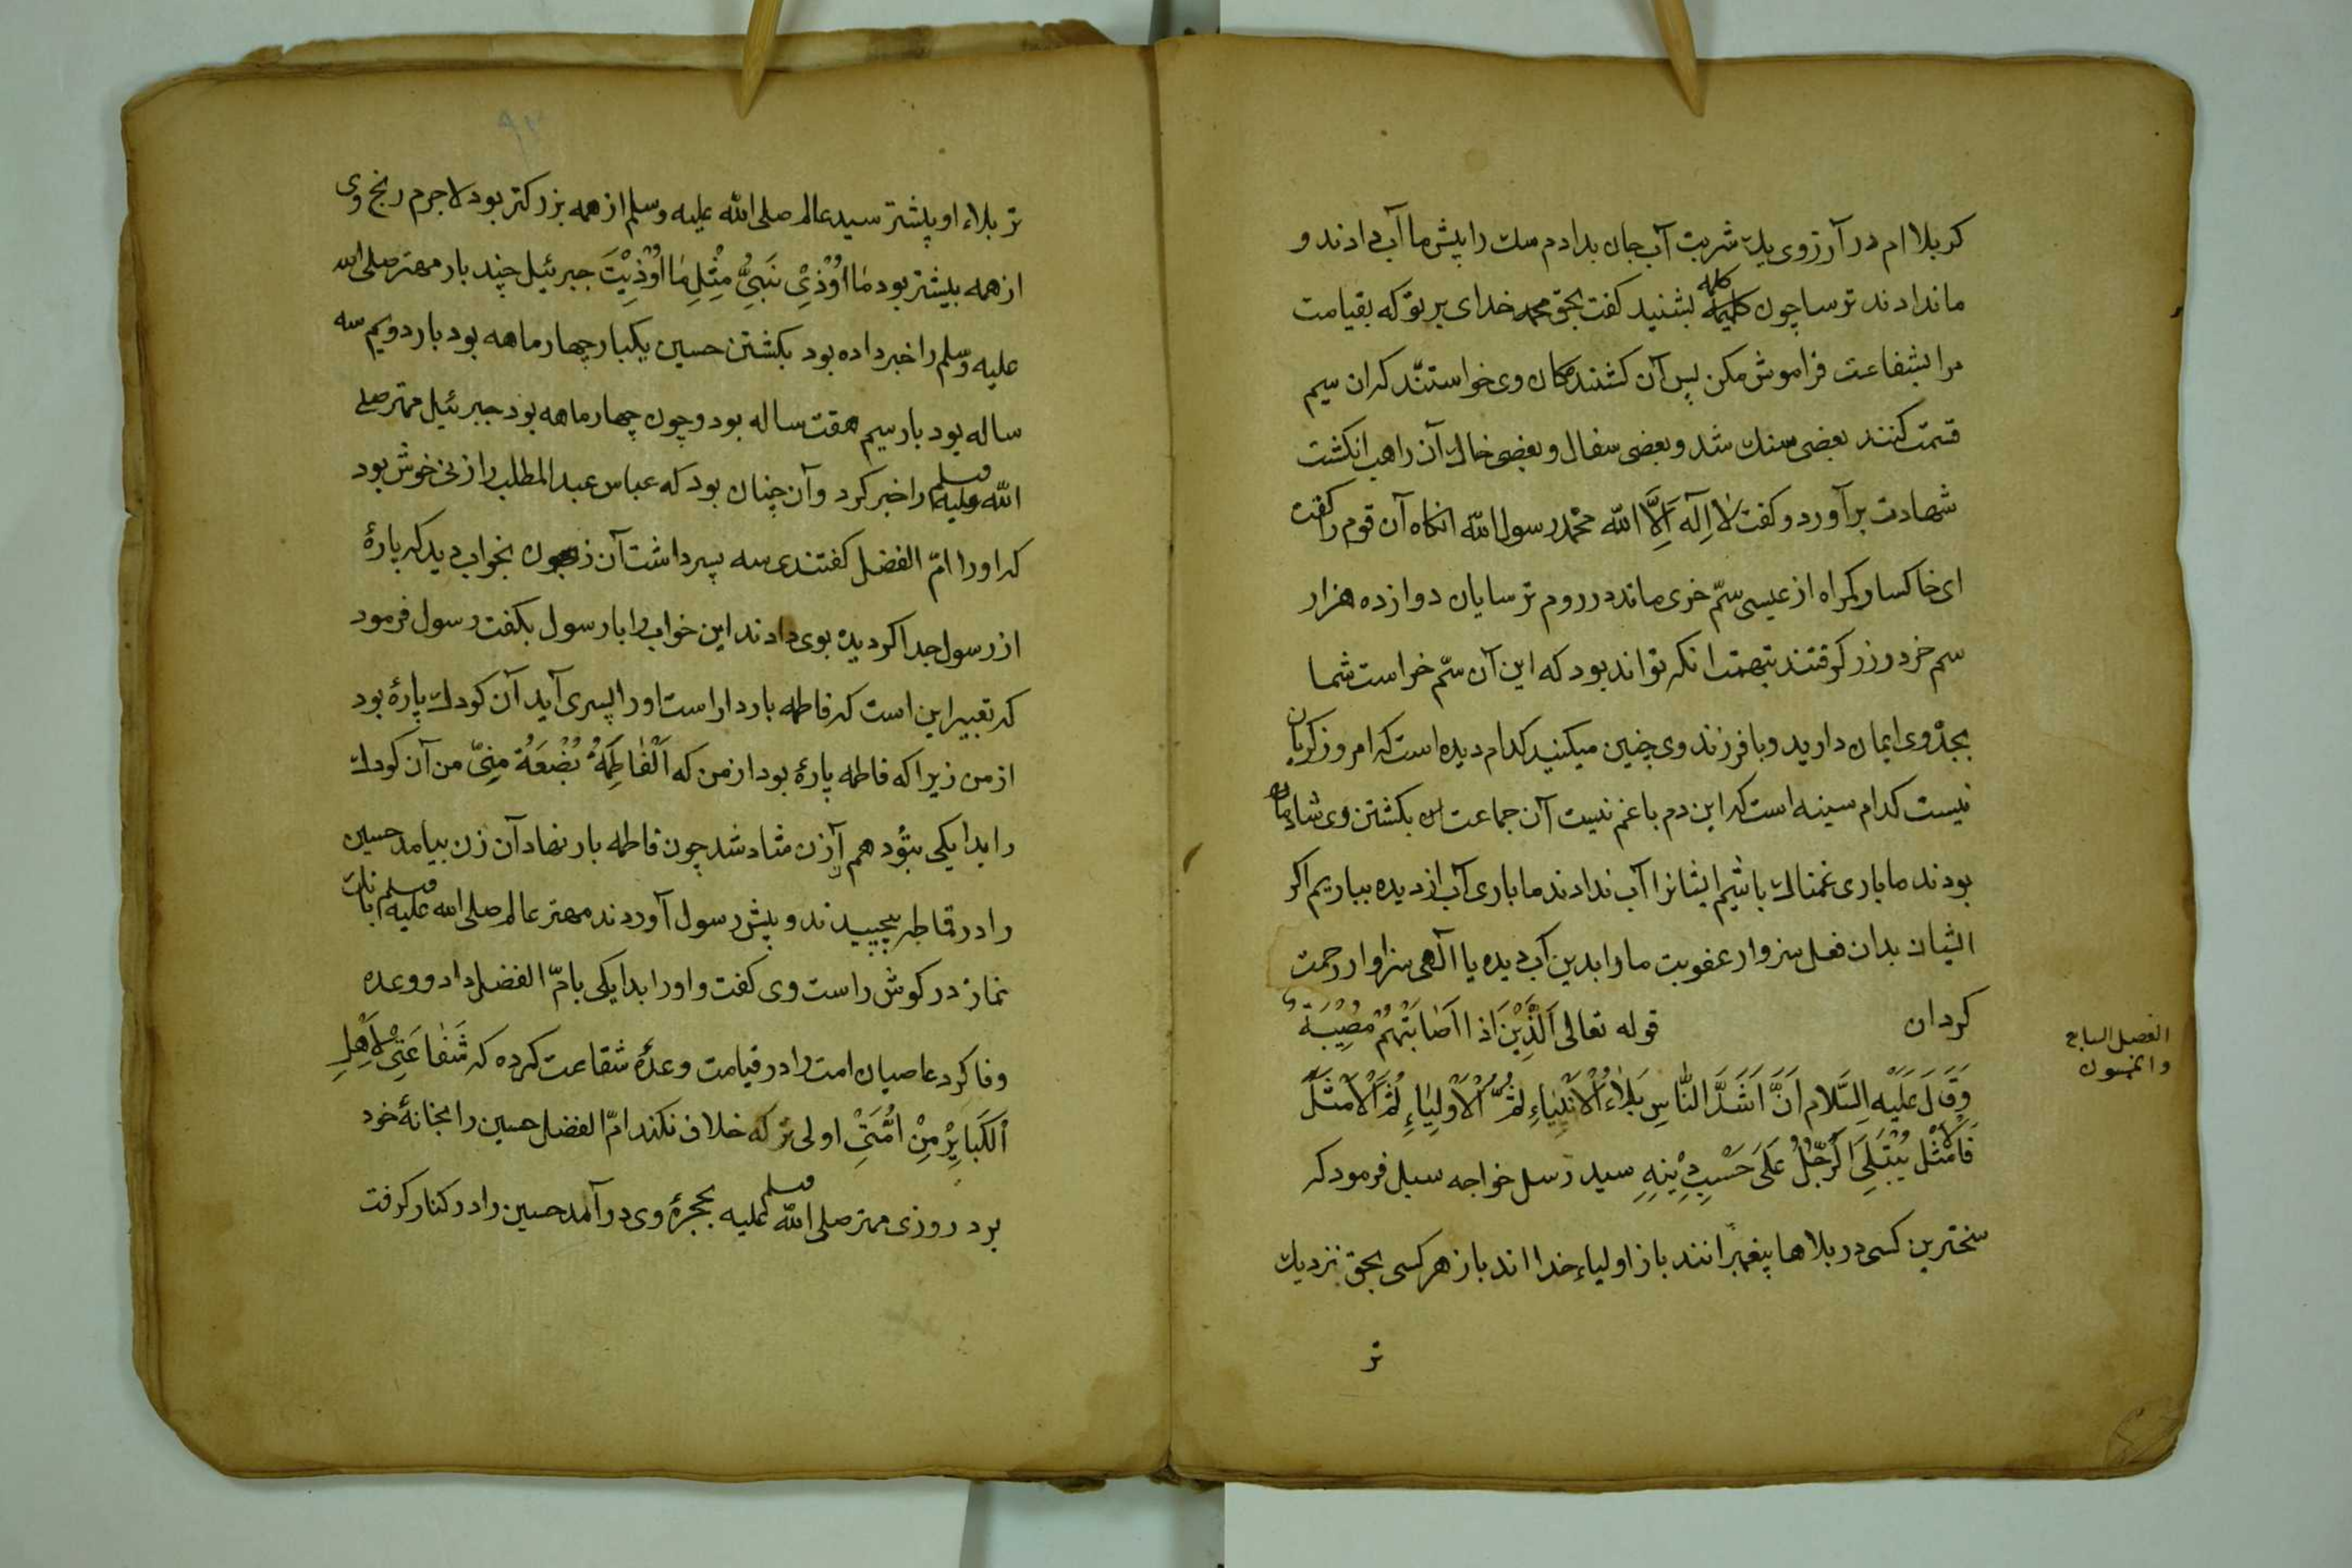 کربلا ام در آرزوی یک شربت آب جان بدادم سک را پیش ما آب دادند و
ما ندادند ترسا چون کلمه بشنید کفت بحق محمد خدای بر تو که بقیامت
مرا بشفاعت فراموش مکن پس آن کشندکان وی خواستند که ان سیم
قسمت کنند بعضی سنک شد و بعضی سفال و بعضی خاک آن راهب انکشت
شهادت برآورد و کفت لا اِلٓه اِلَّا الله محمّد رسول الله انکاه آن قوم را کفت
ای خاکسار کمراه از عیسی سمّ خری ماند در روم ترسایان دوازده هزار
سم خر در زر کرفتند بتهمت انکه تواند بود که این آن سمّ خر است شما
بجدّ وی ایمان دارید و با فرزند وی چنین میکنید کدام دیده است که امروز کریان
نیست کدام سینه است که این دم با غم نیست آن جماعت بکشتن وی شادمان
بودند ما باری غمناک باشیم ایشانرا آب ندادند ما باری آب از دیده بباریم اکر
ایشان بدان فعل سزوار عقوبت ما را بدین آب دیده یا الٓهی سزاوار رحمت
کردان قوله تعالی اَلَّذِیْنَ اذا اَصَابَتْهُمْ مُصِیْبَةٌ
الفصل السابع
والخمسون
وَقَالَ عَلَیْهِ السَّلام اَنَّ اَشَدَّ النَّاسِ بَلَاءً الْاَنْبِیَاءِ ثُمَّ الْاَوْلِیَاءِ ثُمَّ الْاَمْثَلُ
فَالْاَمْثَل یُبْتَلَی الرَّجُلُ عَلَی حَسْبِ دِیْنِهِ سید رسل خواجه سبل فرمود که
سخترین کسی در بلاها پیغمبرانند باز اولیاء خدا اند باز هر کسی بحق نزدیک
تر
۹۲
تر بلاء او بیشتر سید عالم صلی الله علیه وسلم از همه بزرکتر بود لاجرم رنج وی
از همه بیشتر بود مَا اُوْذِیَ نَبِیٌّ مِثْلِ مَا اُوْذِیْتَ جبرئیل چند بار مهتر صلی الله
علیه وسلم را خبر داده بود بکشتن حسین یکبار چهار ماهه بود بار دویم سه
ساله بود بار سیم هقت ساله بود و چون چهار ماهه بود جبرئیل مهتر صلی
الله علیه وسلم را خبر کرد و آن چنان بود که عباس عبد المطلب را زنی خوش بود
که او را امّ الفضل کفتندی سه پسر داشت آن زن بخواب دید که پارهٔ
از رسول جدا کردیده بوی دادند این خواب را با رسول بکفت رسول فرمود
که تعبیر این است که فاطمه باردار است او را پسری آید آن کودک پارهٔ بود
از من زیرا که فاطمه پارهٔ بود از من که اَلْفَاطِمَةُ بُضْعَةُ مِنِّی من آن کودک
را بدایکی بتو دهم آن زن شاد شد چون فاطمه بار نهاد آن زن بیامد حسین
را در قماطه پیچیدند و پیش رسول آوردند مهتر عالم صلی الله علیه وسلم بانک
نماز در کوش راست وی کفت و او را بدایکی بامّ الفضل داد و وعده
وفا کرد عاصیان امت را در قیامت وعدهٔ شقاعت کرده که شَفَاعَتِیْ لِاَهْلِ
الْکَبَایِرْ مِنْ اُمَّتِیْ اولی تر که خلاف نکند امّ الفضل حسین را بخانهٔ خود
برد روزی مهتر صلی الله علیه وسلم بحجرهٔ وی درآمد حسین را در کنار کرفت